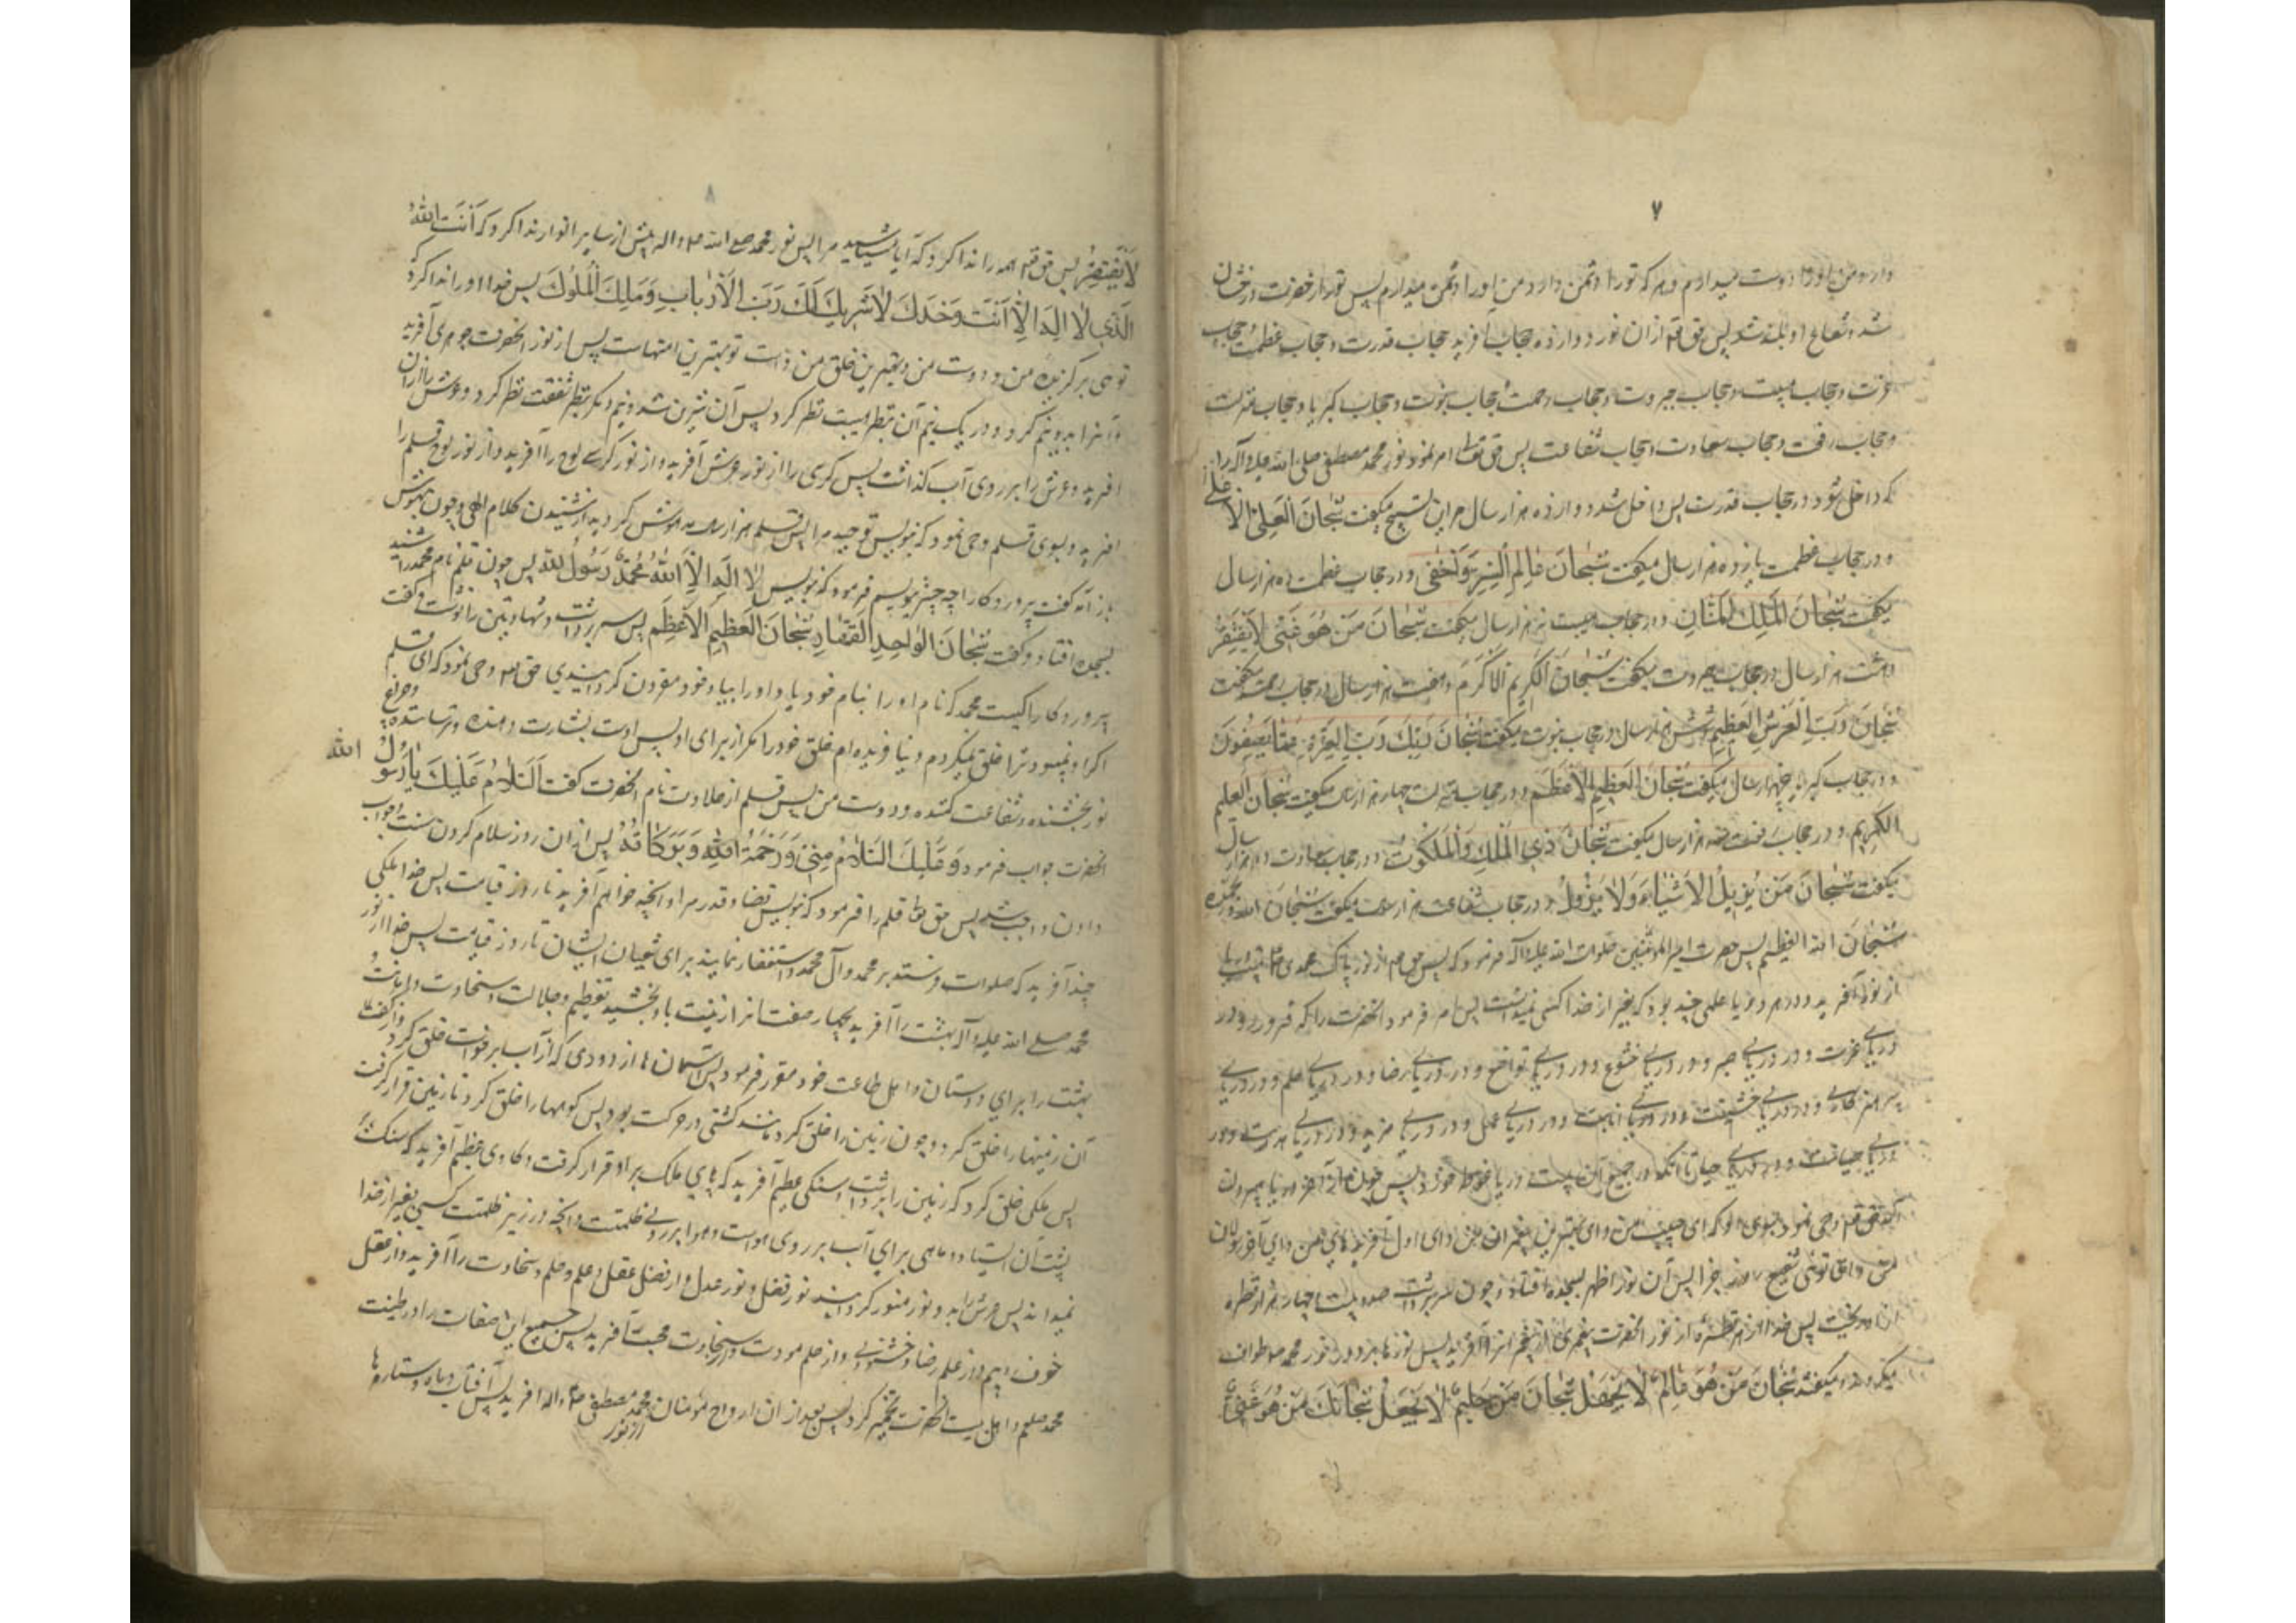 ۷
دارد من او را دوست میدارم و هر که تو را دشمن دارد من او را دشمن میدارم پس نور آنحضرت درخشان
شد و شعاع او بلند شد پس حق تعالی از آن نور دوازده حجاب آفرید حجاب قدرت و حجاب عظمت و حجاب
عزت و حجاب هیبت و حجاب جبروت و حجاب رحمت و حجاب نبوت و حجاب کبریا و حجاب منزلت
و حجاب رفعت و حجاب سعادت و حجاب شفاعت پس حق تعالی امر نمود نور محمد مصطفی صلی الله علیه و آله را
که داخل شود در حجاب قدرت پس داخل شد دوازده هزار سال میگفت سُبْحانَ الْعَلِیِّ الْاَعْلی
و در حجاب عظمت یازده هزار سال میگفت سُبْحانَ عالِمِ السِّرِّ وَ اَخْفی و در حجاب عظمت ده هزار سال
میگفت سُبْحانَ الْمَلِکِ الْمَنّانِ و در حجاب هیبت نه هزار سال میگفت سُبْحانَ مَنْ هُوَ غَنِیٌّ لا یَفْتَقِرُ
و هشت هزار سال در حجاب جبروت میگفت سُبْحانَ الْکَرِیمِ الْاَکْرَمِ و هفت هزار سال در حجاب رحمت میگفت
سُبْحانَ رَبِّ الْعَرْشِ الْعَظِیمِ و شش هزار سال در حجاب نبوت میگفت سُبْحانَ رَبِّکَ رَبِّ الْعِزَّةِ عَمّا یَصِفُونَ
و در حجاب کبریا پنجهزار سال میگفت سُبْحانَ الْعَظِیمِ الْاَعْظَمِ و در حجاب منزلت چهار هزار سال میگفت سُبْحانَ الْعَلِیمِ
الْکَرِیمِ و در حجاب رفعت سه هزار سال میگفت سُبْحانَ ذِی الْمُلْکِ وَ الْمَلَکُوتِ و در حجاب سعادت دو هزار سال
میگفت سُبْحانَ مَنْ یُزِیلُ الْاَشْیاءَ وَلا یَزُولُ و در حجاب شفاعت هزار سال میگفت سُبْحانَ اللهِ وَ بِحَمْدِهِ
سُبْحانَ الله العظیم پس حضرت امیر المؤمنین صلوات الله علیه و آله فرمود که پس حق تعالی از نور پاک محمدی ص بیست دریا
از نور آفرید و در هر دریا علمی چند بود که بغیر از خدا کسی نمیدانست پس امر فرمود آنحضرت را که فرو رود در
دریای عزت و در دریای صبر و در دریای خشوع و در دریای تواضع و در دریای رضا و در دریای حلم و در دریای
پرهیزکاری و در دریای خشیت و در دریای انابت و در دریای عمل و در دریای مزید و در دریای هدایت و در
دریای صیانت و در دریای حیا تا آنکه در جمیع آن بیست دریا غوطه خورد پس چون از آخر دریا بیرون
آمد حق تعالی وحی نمود بسوی او که ای حبیب من و ای بهترین پیغمبران من و ای اول آفریده‌های من و ای آخر رسولان
من توئی شفیع روز جزا پس آن نور اظهر بسجده افتاد و چون سر برداشت صد و بیست و چهار هزار قطره
از او بریخت پس خدا از هر قطره از نور آنحضرت پیغمبری از پیغمبران را آفرید پس نورها بر دور نور محمد ص طواف
میکردند و میگفتند سُبْحانَ مَنْ هُوَ عالِمٌ لا یَجْهَلُ سُبْحانَ مَنْ هُوَ حَلِیمٌ لا یَعْجَلُ سُبْحانَ مَنْ هُوَ غَنِیٌّ
۸
لا یَفْتَقِرُ پس حق تعالی همه را ندا کرد که آیا میشناسید مرا پس نور محمد صلی الله علیه و آله پیش از سایر انوار ندا کرد که اَنْتَ اللهُ
الَّذِی لا اِلهَ اِلاّ اَنْتَ وَحْدَکَ لا شَرِیکَ لَکَ رَبَّ الْاَرْبابِ وَ مَلِکَ الْمُلُوکِ پس خدا او را ندا کرد که
توئی برگزیده من و دوست من و بهترین خلق من و امت تو بهترین امتهاست پس از نور آنحضرت جوهری آفرید
و آنرا بدو نیم کرد و در یک نیم آن بنظر هیبت نظر کرد پس آن شیرین شد و نیم دیگر بنظر شفقت نظر کرد و عرش را از آن
آفرید و عرش را بر روی آب گذاشت پس کرسی را از نور عرش آفرید و از نور کرسی لوح را آفرید و از نور لوح قلم را
آفرید و بسوی قلم وحی نمود که بنویس توحید مرا پس قلم هزار سال مدهوش گردید از شنیدن کلام الهی و چون بهوش
باز آمد گفت پروردگارا چه چیز بنویسم فرمود که بنویس لا اِلهَ اِلاَّ اللهُ مُحَمَّدٌ رَسُولُ اللهِ پس چون قلم نام محمد را شنید
بسجده افتاد و گفت سُبْحانَ الْواحِدِ الْقَهّارِ سُبْحانَ الْعَظِیمِ الْاَعْظَمِ پس سر برداشت و شهادتین را نوشت و گفت
پروردگارا کیست محمد که نام او را بنام خود و یاد او را بیاد خود مقرون گردانیدی حق تعالی وحی نمود که ای قلم
اگر او نمیبود ترا خلق نمیکردم و نیافریده‌ام خلق خود را مگر از برای او پس اوست بشارت دهنده و ترساننده و چراغ
نور بخشنده و شفاعت کننده و دوست من پس قلم از حلاوت نام آنحضرت گفت اَلسَّلامُ عَلَیْکَ یا رَسُولَ الله
آنحضرت جواب فرمود وَ عَلَیْکَ السَّلامُ مِنِّی وَ رَحْمَةُ اللهِ وَ بَرَکاتُهُ پس از آن روز سلام کردن سنت و جواب
دادن واجب شد پس حق تعالی قلم را فرمود که بنویس قضا و قدر مرا و آنچه خواهم آفرید تا روز قیامت پس خدا ملکی
چند آفرید که صلوات فرستند بر محمد و آل محمد و استغفار نمایند برای شیعیان ایشان تا روز قیامت پس خدا از نور
محمد صلی الله علیه و آله بهشت را آفرید و بچهار صفت آنرا زینت بخشید تعظیم و جلالت و سخاوت و امانت
و بهشت را برای دوستان و اهل طاعت خود مقرر فرمود پس آسمان ها از دودی که از آب برخواست خلق کرد و از کف
آن زمینها را خلق کرد و چون زمین را خلق کرد مانند کشتی در حرکت بود پس کوهها را خلق کرد تا زمین قرار گرفت
پس ملکی خلق کرد که زمین را برداشت و سنگی عظیم آفرید که پای ملک بر او قرار گرفت و گاوی عظیم آفرید که سنگ بر
پشت آن ایستاد و ماهی برای آب بر روی هواست و هوا بر روی ظلمتست و آنچه در زیر ظلمتست کسی بغیر از خدا
نمیداند پس عرش را بدو نور منور گردانید نور فضل و نور عدل و از فضل عقل و علم و حلم و سخاوت را آفرید و از عقل
خوف و بیم و از علم رضا و خشنودی و از حلم مودت و از سخاوت محبت آفرید پس جمیع این صفات را در طینت
محمد صلعم و اهل بیت آنحضرت تخمیر کرد پس بعد از آن ارواح مؤمنان از نور محمد مصطفی ص و آله آفرید پس آفتاب و ماه و ستاره‌ها